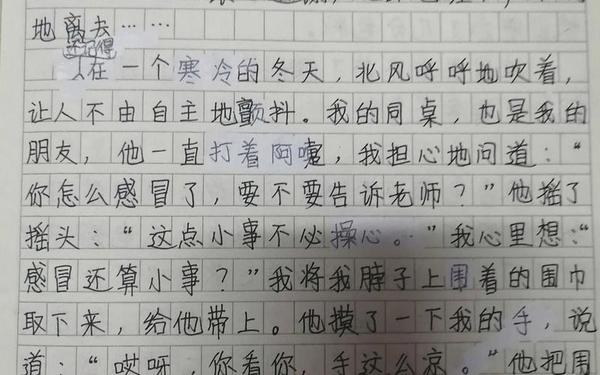 地离去……
还记得
在一个寒冷的冬天，北风呼呼地吹着，
让人不由自主地颤抖。我的同桌，也是我的
朋友，他一直打着阿嚏，我担心地问道：“
你怎么感冒了，要不要告诉老师？”他摇了
摇头：“这点小事不必操心。”我心里想：“
感冒还算小事？”我将我脖子上围着的围巾
取下来，给他带上。他摸了一下我的手，说
道：“哎呀，你看你，手这么凉。”他把围